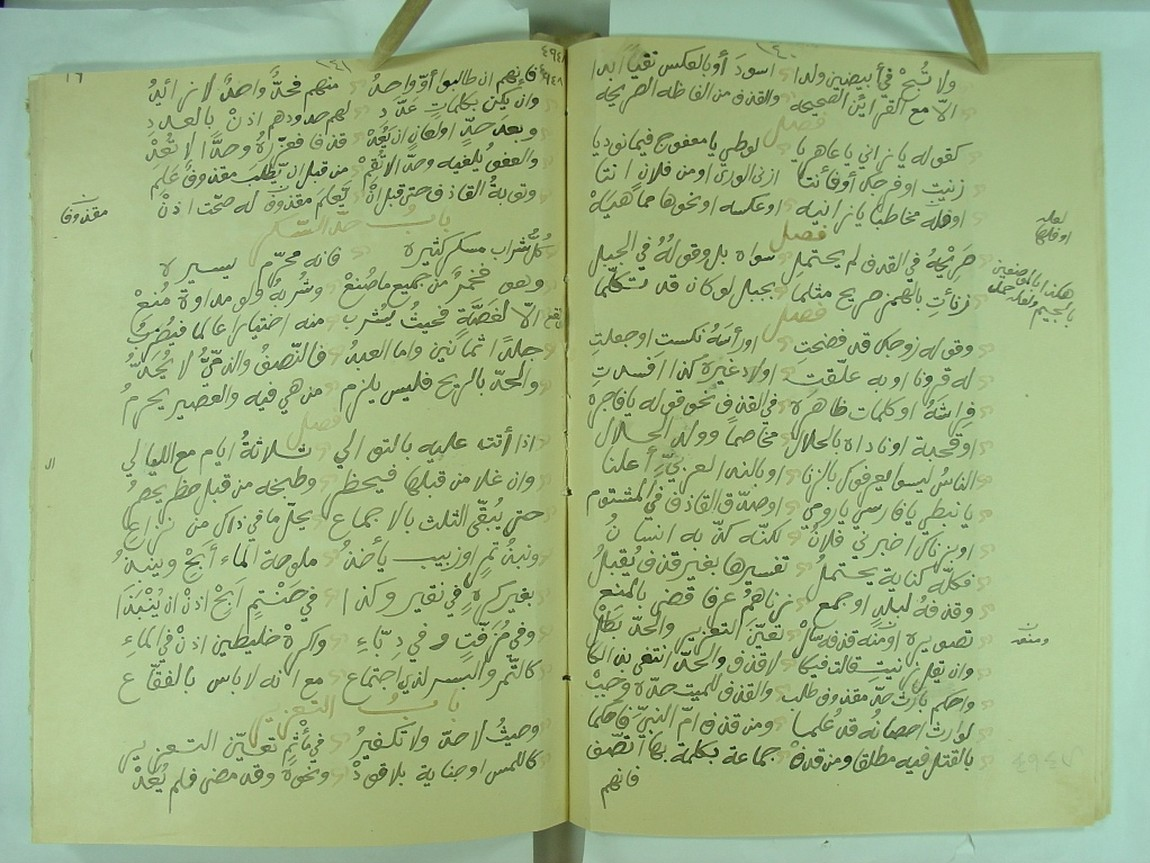 ولا تبح في أبيضين ولدا اسود أو بالعكس نقيا ابدا
الا مع القراين الصحيحه والقذف من الفاظه الصريحه
فصل
كقوله يا زاني يا عاهر يا لوطي يا معفوج فيما نوديا
زنيت او فرجك أو فأنتا ازنى الورى او من فلان انتا
مخاطبا يا زانيه او عكسه او نحوها مما هيه
فصل
صريحة في القذف لم يحتمل سواه بل وقوله في الجبل
زنأت بالهمز صريح مثلما بجبل لو كان قد تكلما
فصل
وقوله زوجك قد فضحت او رأسه نكست او جعلت
له قرونا او به علقت اولاد غيره كذا افسدت
فراشه او كلمات ظاهره في القذف نحو قوله يا فاجره
او قحبة او ناداه بالحلال مخاصما وولد الحلال
الناس ليسوا يعرفوك بالزنا او بالندا لعربي أعلنا
يا نبطي يا فارسي يا رومي او صدق القاذف في المشتوم
اوين ناك اخبرني فلان لكنه كذبه انسان
فكله كناية يحتمل تفسيرها بغير قذف يقبل
وقذفه لبلد او جمع زناهم عرفا قضي بالمنع
تصويره او منه قذفه سأل تعين التعزير والحد بطل
وان يقل زنيت قالت فبكا لا قذف والحد انتفى بذلكا
واحكم بارث حد مقذوف طلب والقذف للميت حده وجب
لوارث احصانه قد علما ومن قذف ام النبي فاحكما
بالقتل فيه مطلقا ومن قذف جماعة بكلمة بها اتصف
فانهم
لعله
او قلها
هكذا
بالجيم
فانهم ان طالبوا أو واحد منهم فحد واحد لا زائد
وان يكن بكلمات عدد لهم حدودهم اذن بالعدد
وبعد حد او لعان ان يعد قذفا فعزره وحدا لا تعد
والعفو يلغيه وحد الا تقم من قبل ان يطلب مقذوف علم
وتوبة القاذف حتى قبل ان يعلم مقذوف له صحت اذن
مقذوفا
باب حد السكر
كل شراب مسكر كثيره فانه محرم يسيره
وهو خمر من جميع ما صنع وشربه ولو مداواة منع
الا لغصة فحيث يشرب منه اختيارا عالما فيضرب
جلدا ثمانين واما العبد فالنصف والذمي لا يحد
والحد بالريح فليس يلزم من هي فيه والعصير يحرم
فصل
اذا أتته عليه بالتوالي ثلاثة ايام مع الليالي
وان غلا من قبلها فيحظر وطبخه من قبل حظر يحصر
حتى يبقى الثلث بالاجماع يحل ما في ذاك من نزاع
ونبذ تمر او زبيب يأخذ ملوحة الماء أبح وينبذ
بغير كره في نقير وكذا في حنتم أبح اذن ان ينبذا
وفي مزفت وفي دباء واكره خليطين اذن في الماء
كالتمر والبسر لدى اجتماع مع انه لا باس بالفقاع
باب التعزير
وحيث لا حد ولا تكفير في مأثم تعين التعزير
كاللمس او جناية بلا قود ونحوه وقد مضى فلم يعد